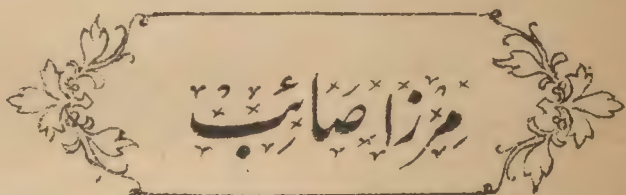 مرزا صائب